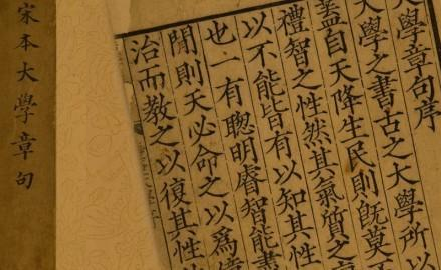 大學章句序
大學之書古之大學所以
蓋自天降生民則既莫不
禮智之性然其氣質之
以不能皆有以知其性
也一有聰明睿智能盡
閒則天必命之以為億
治而教之以復其性
宋本大學章句